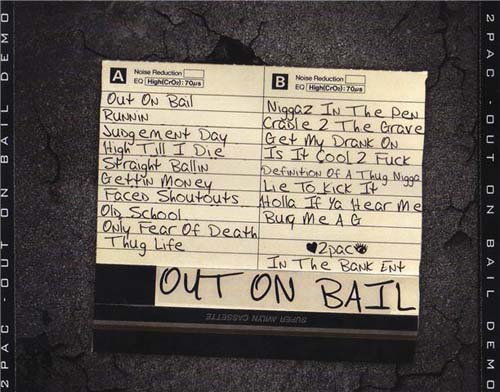 2PAC - OUT ON BAIL DEMO
A
Noise Reduction
EQ High(CrO2): 70µs
Out On Bail
Runnin
Judgement Day
High Till I Die
Straight Ballin
Gettin Money
Faced Shoutouts
Old School
Only Fear Of Death
Thug Life
B
Noise Reduction
EQ High(CrO2): 70µs
Niggaz In The Pen
Cradle 2 The Grave
Get My Drank On
Is It Cool 2 Fuck
Definition Of A Thug Nigga
Lie To Kick It
Holla If Ya Hear Me
Bury Me A G
2pac
In The Bank Ent
OUT ON BAIL
SUPER AVILYN CASSETTE
2PAC - OUT ON BAIL DEMO